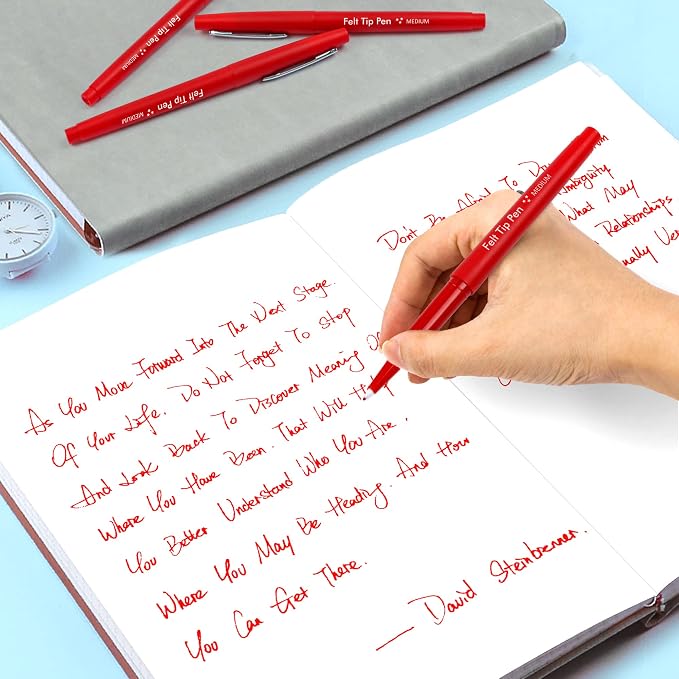 Felt Tip Pen MEDIUM
Felt Tip Pen MEDIUM
Felt Tip Pen MEDIUM
Felt Tip Pen MEDIUM
As You Move Forward Into The Next Stage.
Of Your Life. Do Not Forget To Stop
And Look Back To Discover Meaning
Where You Have Been. That Will
You Better Understand Who You Are.
Where You May Be Heading. And How
You Can Get There.
— David Steinbrenner.
Don't Be Afraid To
Ambiguity
What May
Relationships